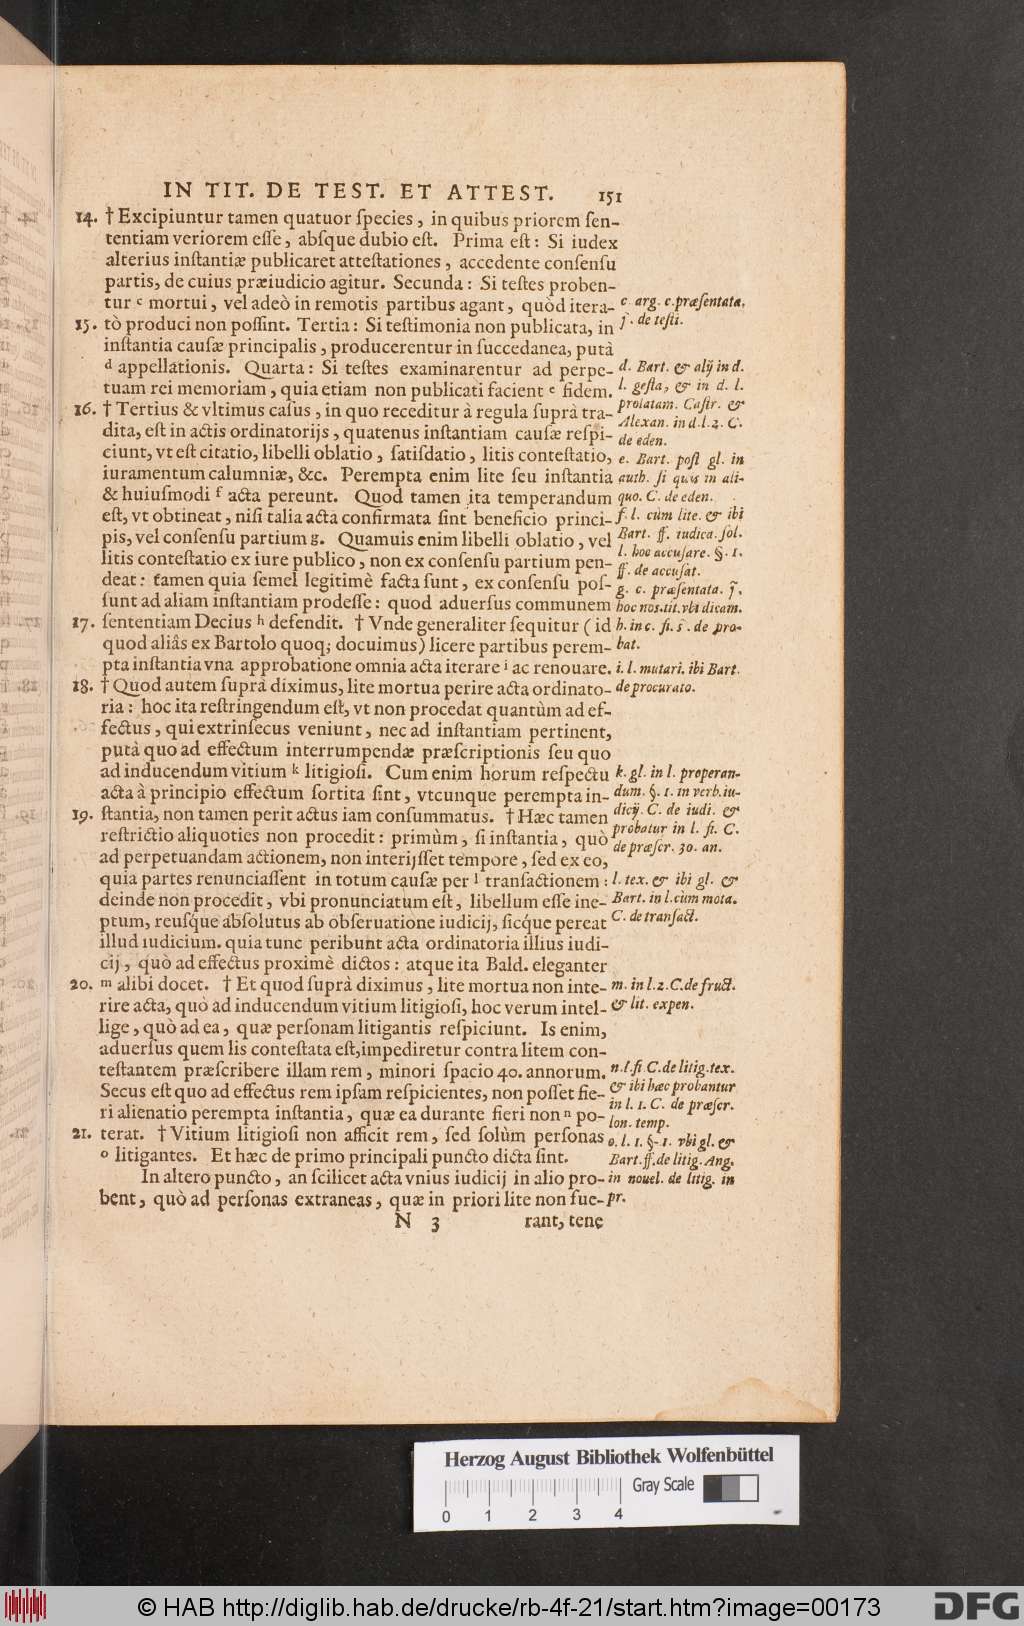 IN TIT. DE TEST. ET ATTEST. 151
14. † Excipiuntur tamen quatuor ſpecies, in quibus priorem ſen-
tentiam veriorem eſſe, abſque dubio eſt. Prima eſt: Si iudex
alterius inſtantiæ publicaret atteſtationes, accedente conſenſu
partis, de cuius præiudicio agitur. Secunda: Si teſtes proben-
tur c mortui, vel adeò in remotis partibus agant, quòd itera-
15. tò produci non poſſint. Tertia: Si teſtimonia non publicata, in
inſtantia cauſæ principalis, producerentur in ſuccedanea, putà
d appellationis. Quarta: Si teſtes examinarentur ad perpe-
tuam rei memoriam, quia etiam non publicati facient e fidem.
16. † Tertius & vltimus caſus, in quo receditur à regula ſuprà tra-
dita, eſt in actis ordinatorijs, quatenus inſtantiam cauſæ reſpi-
ciunt, vt eſt citatio, libelli oblatio, ſatiſdatio, litis conteſtatio,
iuramentum calumniæ, &c. Perempta enim lite ſeu inſtantia
& huiuſmodi f acta pereunt. Quod tamen ita temperandum
eſt, vt obtineat, niſi talia acta confirmata ſint beneficio princi-
pis, vel conſenſu partium g. Quamuis enim libelli oblatio, vel
litis conteſtatio ex iure publico, non ex conſenſu partium pen-
deat: tamen quia ſemel legitimè facta ſunt, ex conſenſu poſ-
ſunt ad aliam inſtantiam prodeſſe: quod aduerſus communem
17. ſententiam Decius h defendit. † Vnde generaliter ſequitur (id
quod aliâs ex Bartolo quoq; docuimus) licere partibus perem-
pta inſtantia vna approbatione omnia acta iterare i ac renouare.
18. † Quod autem ſuprà diximus, lite mortua perire acta ordinato-
ria: hoc ita reſtringendum eſt, vt non procedat quantùm ad ef-
fectus, qui extrinſecus veniunt, nec ad inſtantiam pertinent,
putà quo ad effectum interrumpendæ præſcriptionis ſeu quo
ad inducendum vitium k litigioſi. Cum enim horum reſpectu
acta à principio effectum ſortita ſint, vtcunque perempta in-
19. ſtantia, non tamen perit actus iam conſummatus. † Hæc tamen
reſtrictio aliquoties non procedit: primùm, ſi inſtantia, quò
ad perpetuandam actionem, non interijſſet tempore, ſed ex eo,
quia partes renunciaſſent in totum cauſæ per l tranſactionem:
deinde non procedit, vbi pronunciatum eſt, libellum eſſe ine-
ptum, reuſque abſolutus ab obſeruatione iudicij, ſicque pereat
illud iudicium. quia tunc peribunt acta ordinatoria illius iudi-
cij, quò ad effectus proximè dictos: atque ita Bald. eleganter
20. m alibi docet. † Et quod ſuprà diximus, lite mortua non inte-
rire acta, quò ad inducendum vitium litigioſi, hoc verum intel-
lige, quò ad ea, quæ perſonam litigantis reſpiciunt. Is enim,
aduerſus quem lis conteſtata eſt, impediretur contra litem con-
teſtantem præſcribere illam rem, minori ſpacio 40. annorum.
Secus eſt quo ad effectus rem ipſam reſpicientes, non poſſet fie-
ri alienatio perempta inſtantia, quæ ea durante fieri non n po-
21. terat. † Vitium litigioſi non afficit rem, ſed ſolùm perſonas
o litigantes. Et hæc de primo principali puncto dicta ſint.
In altero puncto, an ſcilicet acta vnius iudicij in alio pro-
bent, quò ad perſonas extraneas, quæ in priori lite non fue-
N 3 rant, tene
c. arg. c. præſentata.
j. de teſti.
d. Bart. & alij in d.
l. geſta, & in d. l.
prolatam. Caſtr. &
Alexan. in d. l. 2. C.
de eden.
e. Bart. poſt gl. in
auth. ſi quis in ali-
quo. C. de eden.
f. l. cùm lite. & ibi
Bart. ff. iudica. ſol.
l. hoc accuſare. §. 1.
ff. de accuſat.
g. c. præſentata. j.
hoc nos. tit. vbi dicam.
h. in c. fi. s. de pro-
bat.
i. l. mutari. ibi Bart.
de procurato.
k. gl. in l. properan-
dum. §. 1. in verb. iu-
dicij. C. de iudi. &
probatur in l. fi. C.
de præſcr. 30. an.
l. tex. & ibi gl. &
Bart. in l. cùm mota.
C. de tranſact.
m. in l. 2. C. de fruct.
& lit. expen.
n. l. fi. C. de litig. tex.
& ibi hæc probantur
in l. 1. C. de præſcr.
lon. temp.
o. l. 1. §. 1. vbi gl. &
Bart. ff. de litig. Ang.
in nouel. de litig. in
pr.
Herzog August Bibliothek Wolfenbüttel
Gray Scale
0 1 2 3 4
© HAB http://diglib.hab.de/drucke/rb-4f-21/start.htm?image=00173
DFG